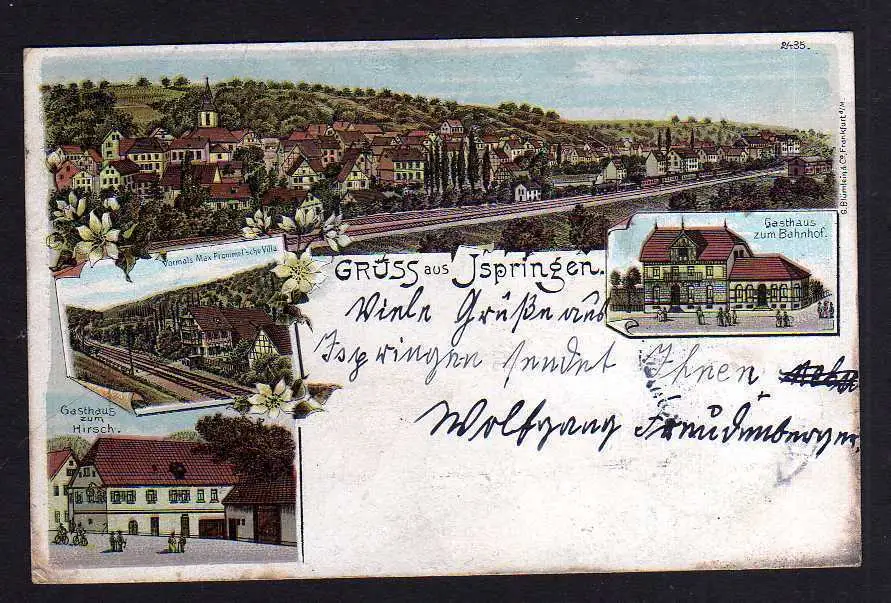 2435.
G. Blümlein & Co., Frankfurt a/M.
Gasthaus
zum Bahnhof.
Vormals Max Frommel'sche Villa
GRÜSS aus Jspringen.
Viele Grüße aus
Ispringen sendet Ihnen
Wolfgang Freudenberger
Gasthaus
zum
Hirsch.